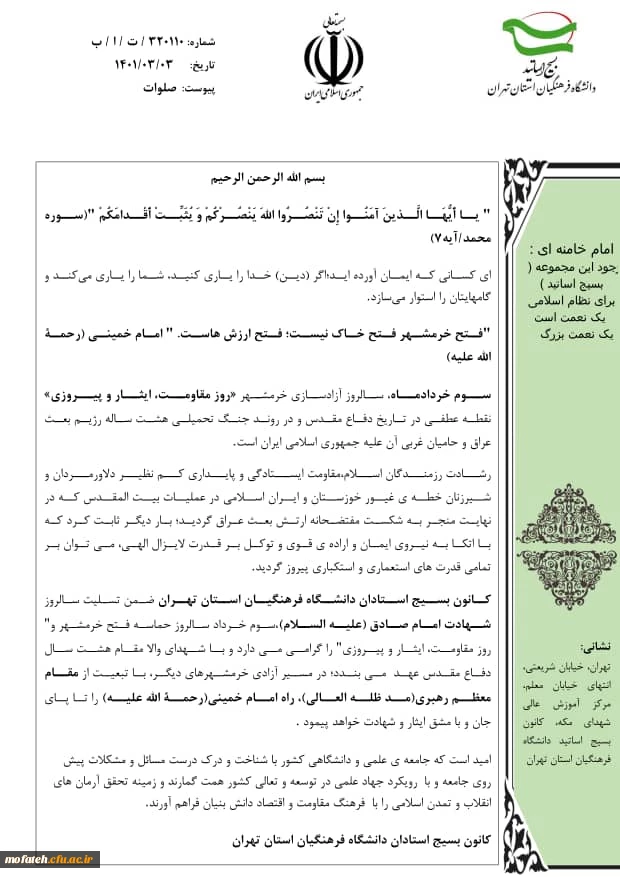 بسمتعالی
جمهوری اسلامی ایران
بسیج اساتید
دانشگاه فرهنگیان استان تهران
شماره: ۳۲۰۱۱۰ / ت / ا / ب
تاریخ: ۱۴۰۱/۰۳/۰۳
پیوست: صلوات
بسم الله الرحمن الرحیم
" یـا أیُّهَـا الَّـذینَ آمَنُـوا إِنْ تَنْصُـرُوا اللهَ یَنْصُـرْکُمْ وَ یُثَبِّـتْ أَقْـدامَکُمْ "(سوره
محمد/آیه۷)
ای کسانی که ایمان آورده اید؛اگر (دین) خدا را یاری کنید، شما را یاری می‌کند و
گامهایتان را استوار می‌سازد.
"فتح خرمشهر فتح خاک نیست؛ فتح ارزش هاست. " امام خمینی (رحمة
الله علیه)
سوم خردادماه، سالروز آزادسازی خرمشهر «روز مقاومت، ایثار و پیروزی»
نقطه عطفی در تاریخ دفاع مقدس و در روند جنگ تحمیلی هشت ساله رژیم بعث
عراق و حامیان غربی آن علیه جمهوری اسلامی ایران است.
رشادت رزمندگان اسلام،مقاومت ایستادگی و پایداری کم نظیر دلاورمردان و
شیرزنان خطه ی غیور خوزستان و ایران اسلامی در عملیات بیت المقدس که در
نهایت منجر به شکست مفتضحانه ارتش بعث عراق گردید؛ بار دیگر ثابت کرد که
با اتکا به نیروی ایمان و اراده ی قوی و توکل بر قدرت لایزال الهی، می توان بر
تمامی قدرت های استعماری و استکباری پیروز گردید.
کانون بسیج استادان دانشگاه فرهنگیان استان تهران ضمن تسلیت سالروز
شهادت امام صادق (علیه السلام)،سوم خرداد سالروز حماسه فتح خرمشهر و"
روز مقاومت، ایثار و پیروزی" را گرامی می دارد و با شهدای والا مقام هشت سال
دفاع مقدس عهد می بندد؛ در مسیر آزادی خرمشهرهای دیگر، با تبعیت از مقام
معظم رهبری(مد ظله العالی)، راه امام خمینی(رحمة الله علیه) را تا پای
جان و با مشق ایثار و شهادت خواهد پیمود .
امید است که جامعه ی علمی و دانشگاهی کشور با شناخت و درک درست مسائل و مشکلات پیش
روی جامعه و با رویکرد جهاد علمی در توسعه و تعالی کشور همت گمارند و زمینه تحقق آرمان های
انقلاب و تمدن اسلامی را با فرهنگ مقاومت و اقتصاد دانش بنیان فراهم آورند.
کانون بسیج استادان دانشگاه فرهنگیان استان تهران
امام خامنه ای :
جود این مجموعه (
بسیج اساتید )
برای نظام اسلامی
یک نعمت است
یک نعمت بزرگ
نشانی:
تهران، خیابان شریعتی،
انتهای خیابان معلم،
مرکز آموزش عالی
شهدای مکه، کانون
بسیج اساتید دانشگاه
فرهنگیان استان تهران
mofateh.cfu.ac.ir